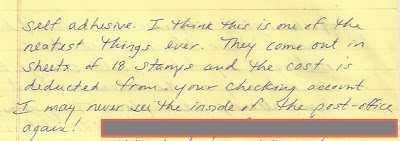 self adhesive. I think this is one of the
neatest things ever. They come out in
sheets of 18 stamps and the cost is
deducted from your checking account
I may never see the inside of the post-office
again!